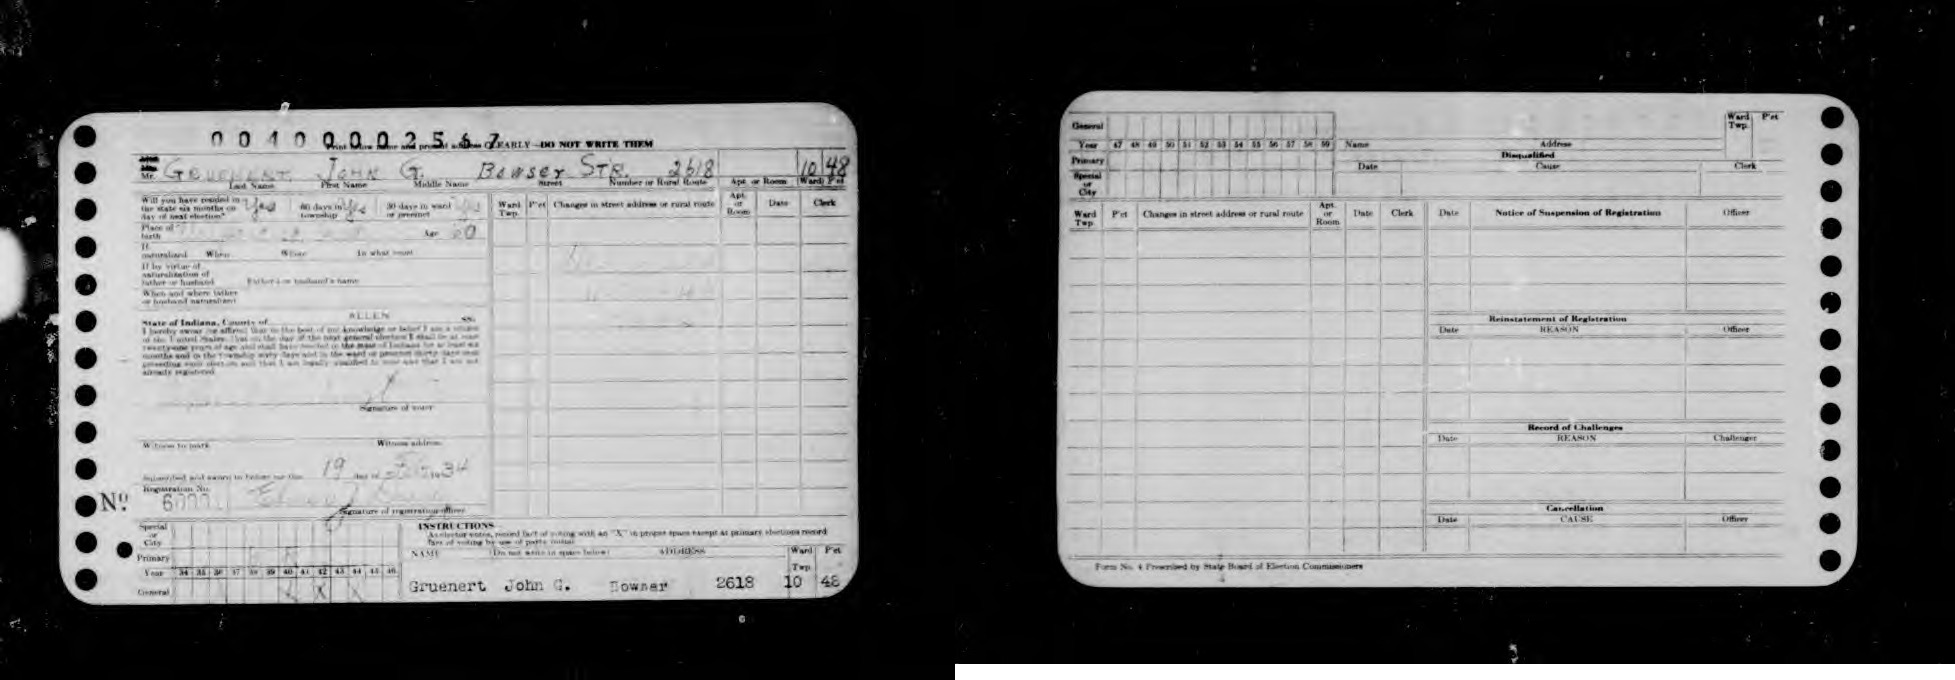 0 0 4 0 0 0 0 2 5 6 7
Print below name and present address CLEARLY—DO NOT WRITE THEM
Mr. GRUENERT JOHN G. Bowser STR. 2618 10 48
Last Name First Name Middle Name Street Number or Rural Route Apt. or Room Ward P'ct
Will you have resided in the state six months on day of next election? Yes 60 days in township Yes 30 days in ward or precinct Yes
Place of birth Age 60
If naturalized When Where In what court
If by virtue of naturalization of father or husband Father's or husband's name
When and where father or husband naturalized
State of Indiana, County of ALLEN ss.
I hereby swear (or affirm) that to the best of my knowledge or belief I am a citizen
of the United States; that on the day of the next general election I shall be at least
twenty-one years of age and shall have resided in the state of Indiana for at least six
months and in the township sixty days and in the ward or precinct thirty days next
preceding such election and that I am legally qualified to vote and that I am not
already registered.
X
Signature of voter
Witness to mark Witness address
Subscribed and sworn to before me this 19 day of 1934
Registration No.
Nº.
Signature of registration officer
Ward Twp. P'ct Changes in street address or rural route Apt. or Room Date Clerk
Special or City
Primary
Year 34 35 36 37 38 39 40 41 42 43 44 45 46
General X X X
INSTRUCTIONS
As elector votes, record fact of voting with an "X" in proper space except at primary elections record
fact of voting by use of party initial
NAME (Do not write in space below) ADDRESS Ward Twp. P'ct
Gruenert John G. Bowser 2618 10 48
General
Year 47 48 49 50 51 52 53 54 55 56 57 58 59 Name Address Ward Twp. P'ct
Primary
Special or City
Disqualified
Date Cause Clerk
Ward Twp. P'ct Changes in street address or rural route Apt. or Room Date Clerk
Date Notice of Suspension of Registration Officer
Reinstatement of Registration
Date REASON Officer
Record of Challenges
Date REASON Challenger
Cancellation
Date CAUSE Officer
Form No. 4 Prescribed by State Board of Election Commissioners